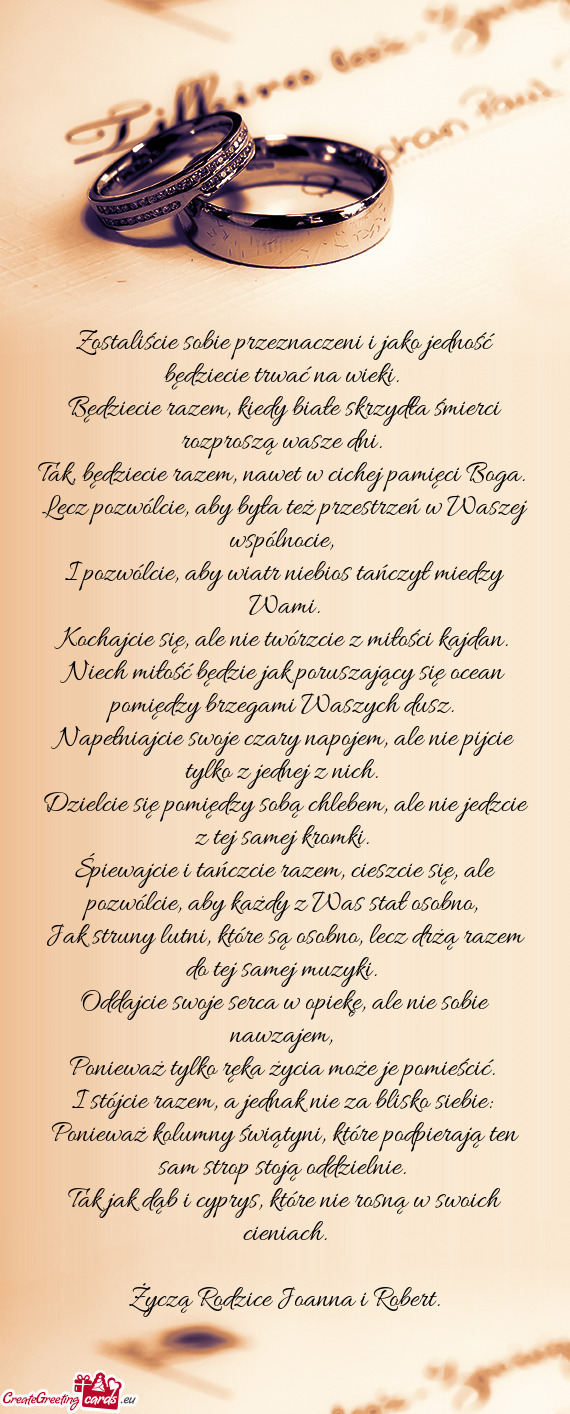 Zostaliście sobie przeznaczeni i jako jedność
będziecie trwać na wieki.
Będziecie razem, kiedy białe skrzydła śmierci
rozproszą wasze dni.
Tak, będziecie razem, nawet w cichej pamięci Boga.
Lecz pozwólcie, aby była też przestrzeń w Waszej
wspólnocie,
I pozwólcie, aby wiatr niebios tańczył miedzy
Wami.
Kochajcie się, ale nie twórzcie z miłości kajdan.
Niech miłość będzie jak poruszający się ocean
pomiędzy brzegami Waszych dusz.
Napełniajcie swoje czary napojem, ale nie pijcie
tylko z jednej z nich.
Dzielcie się pomiędzy sobą chlebem, ale nie jedzcie
z tej samej kromki.
Śpiewajcie i tańczcie razem, cieszcie się, ale
pozwólcie, aby każdy z Was stał osobno,
Jak struny lutni, które są osobno, lecz drżą razem
do tej samej muzyki.
Oddajcie swoje serca w opiekę, ale nie sobie
nawzajem,
Ponieważ tylko ręka życia może je pomieścić.
I stójcie razem, a jednak nie za blisko siebie:
Ponieważ kolumny świątyni, które podpierają ten
sam strop stoją oddzielnie.
Tak jak dąb i cyprys, które nie rosną w swoich
cieniach.
Życzą Rodzice Joanna i Robert.
CreateGreeting cards .eu